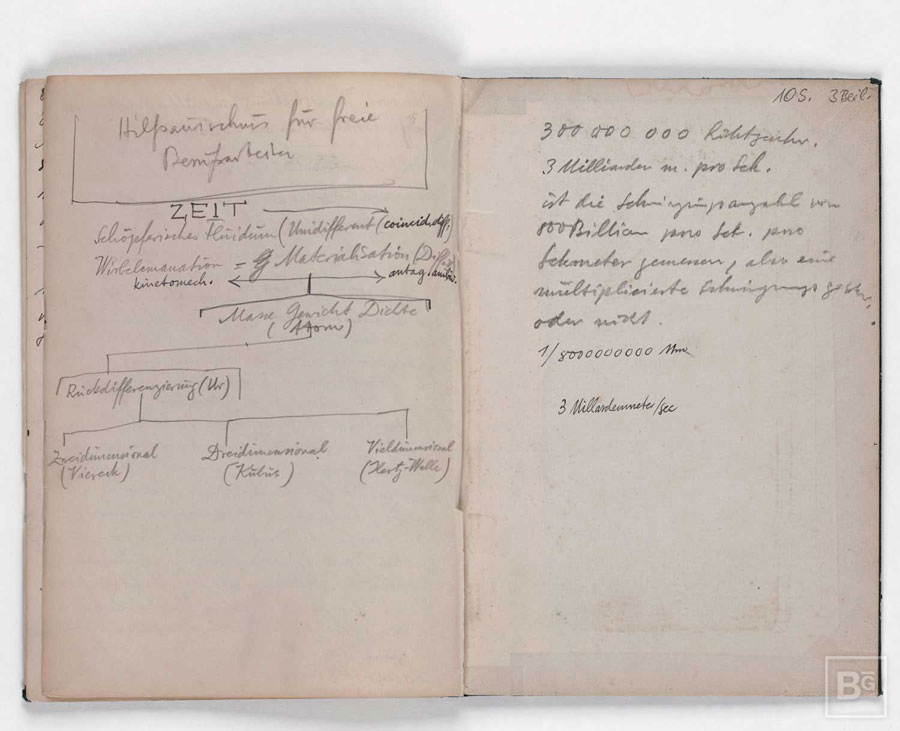 Hilfsausschuss für freie
Berufsarbeiter
ZEIT
Schöpferisches Fluidum (Unidifferent (coincid. diff.)
Wirbelemanation = Materialisation
kinetomech. antag.
Masse Gewicht Dichte
(Atom)
Rückdifferenzierung (Ur)
Zweidimensional Dreidimensional Vieldimensional
(Viereck) (Kubus) (Hertz-Welle)
10 S. 3 Beil.
300 000 000
3 Milliarden m. pro Sek.
ist die Schwingungsanzahl von
800 Billion pro Sek. pro
gemessen, also eine
multiplicierte
oder nicht.
1/8000000000 Mm
3 /sec
BG